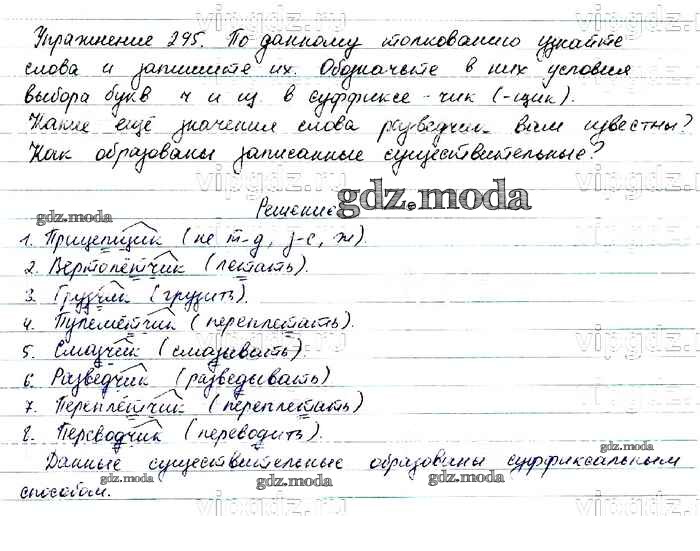 Упражнение 295. По данному толкованию узнайте
слова и запишите их. Обозначьте в них условия
выбора букв ч и щ в суффиксе -чик (-щик).
Какие ещё значения слова разведчик вам известны?
Как образованы записанные существительные?
Решение
gdz.moda
gdz.moda
1. Прицепщик (не т-д, з-с, ж).
2. Вертолётчик (летать).
3. Грузчик (грузить).
4. Пулемётчик (переплетать).
5. Смазчик (смазывать).
6. Разведчик (разведывать)
7. Переплётчик (переплетать)
8. Переводчик (переводить).
gdz.moda
Данные существительные образованы суффиксальным
gdz.moda gdz.moda gdz.moda
способом.
vipgdz.ru